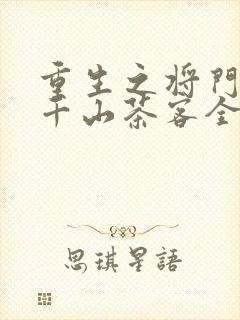 重生之将門
千山茶客全
思琪星語